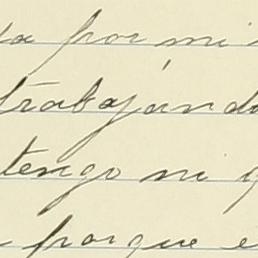 por mi
trabajánd
tengo ni
porque